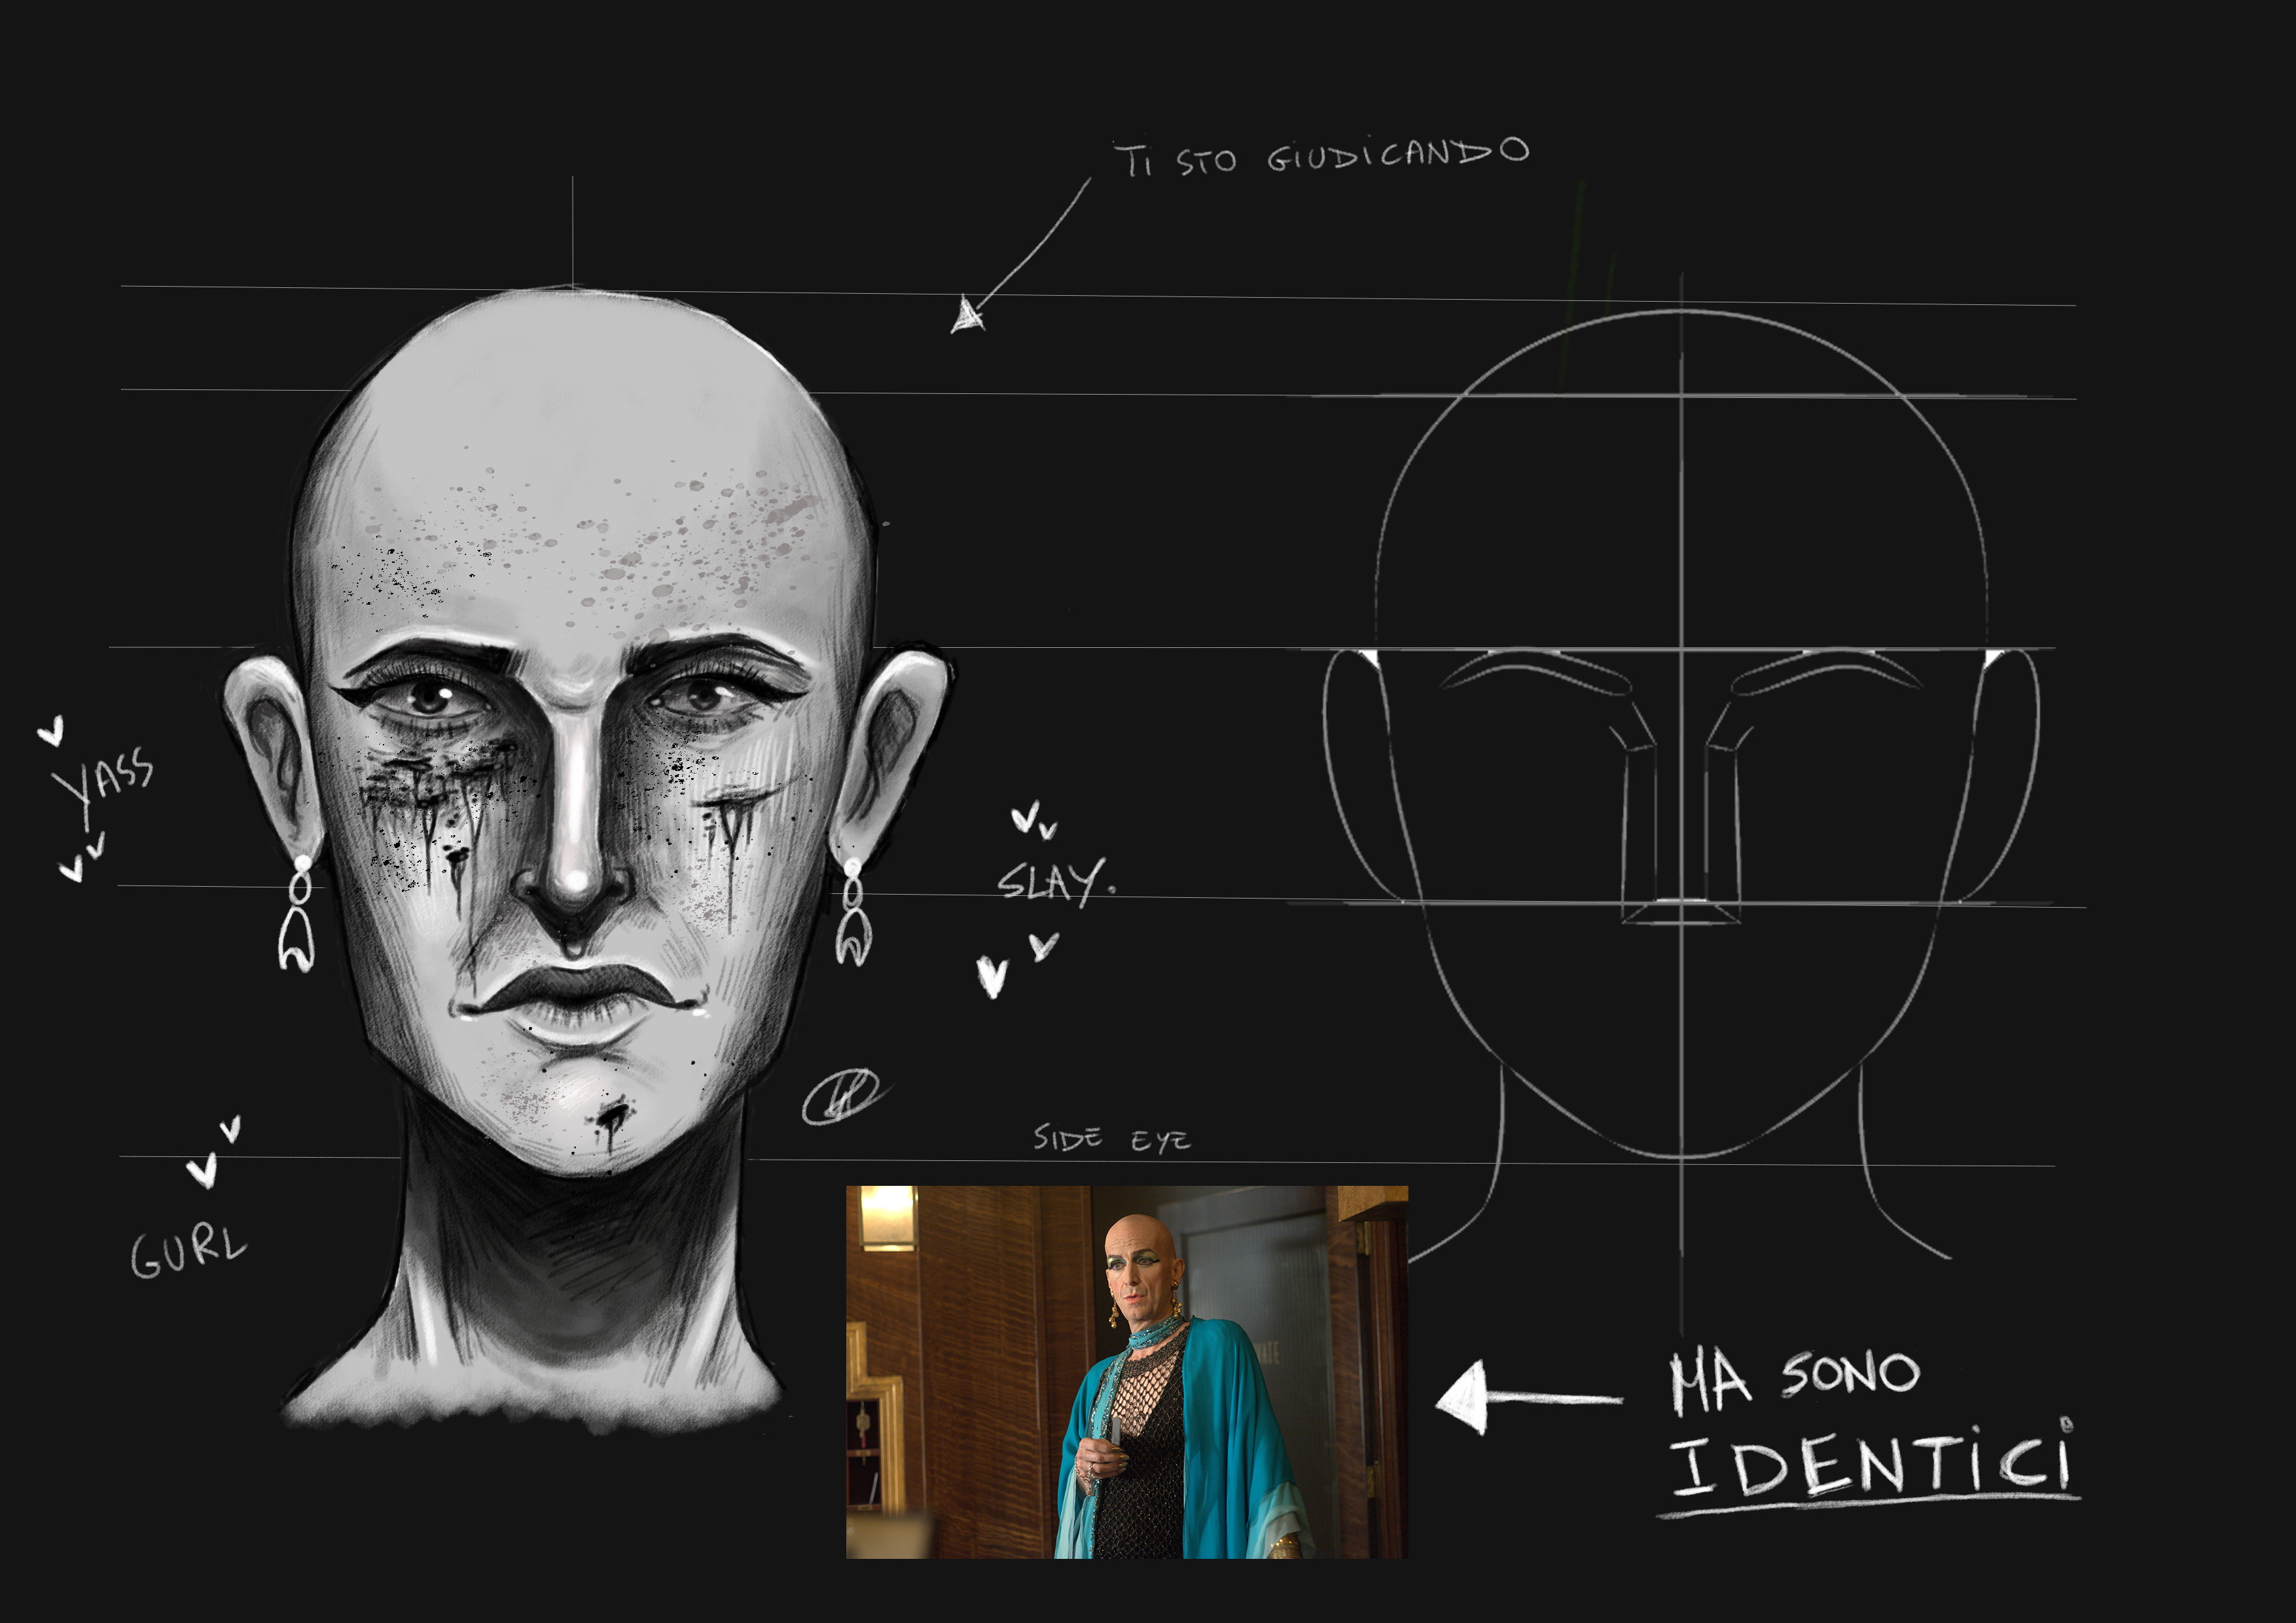 TI STO GIUDICANDO
YASS
SLAY.
SIDE EYE
GURL
MA SONO
IDENTICI